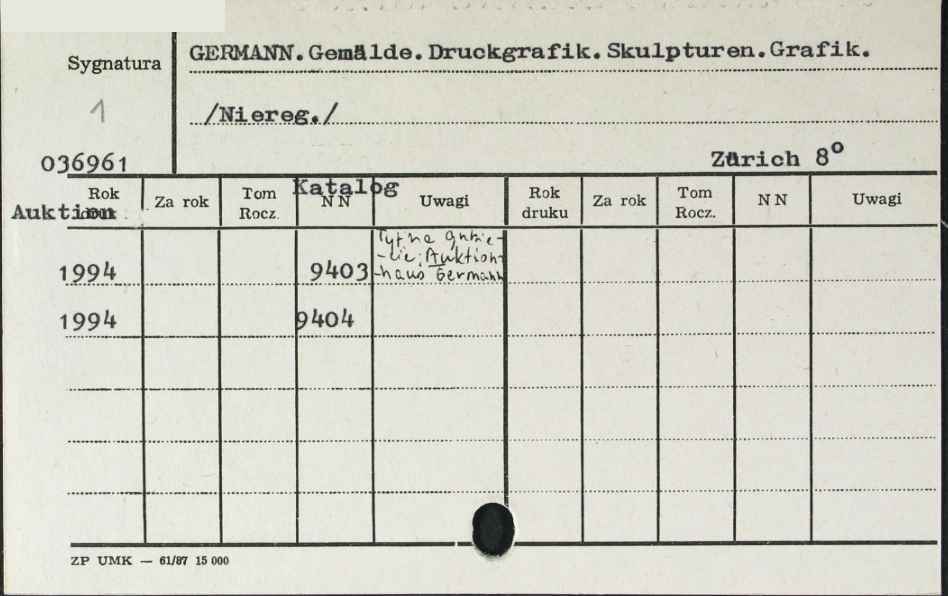 GERMANN. Gemälde. Druckgrafik. Skulpturen. Grafik.
Sygnatura
1
/Niereg./
036961
Zürich 8°
Katalog
Rok Za rok Tom NN Uwagi Rok druku Za rok Tom Rocz. NN Uwagi
Auktion Rocz.
1994 9403 Auktion-
haus Germann
1994 9404
ZP UMK — 61/87 15 000